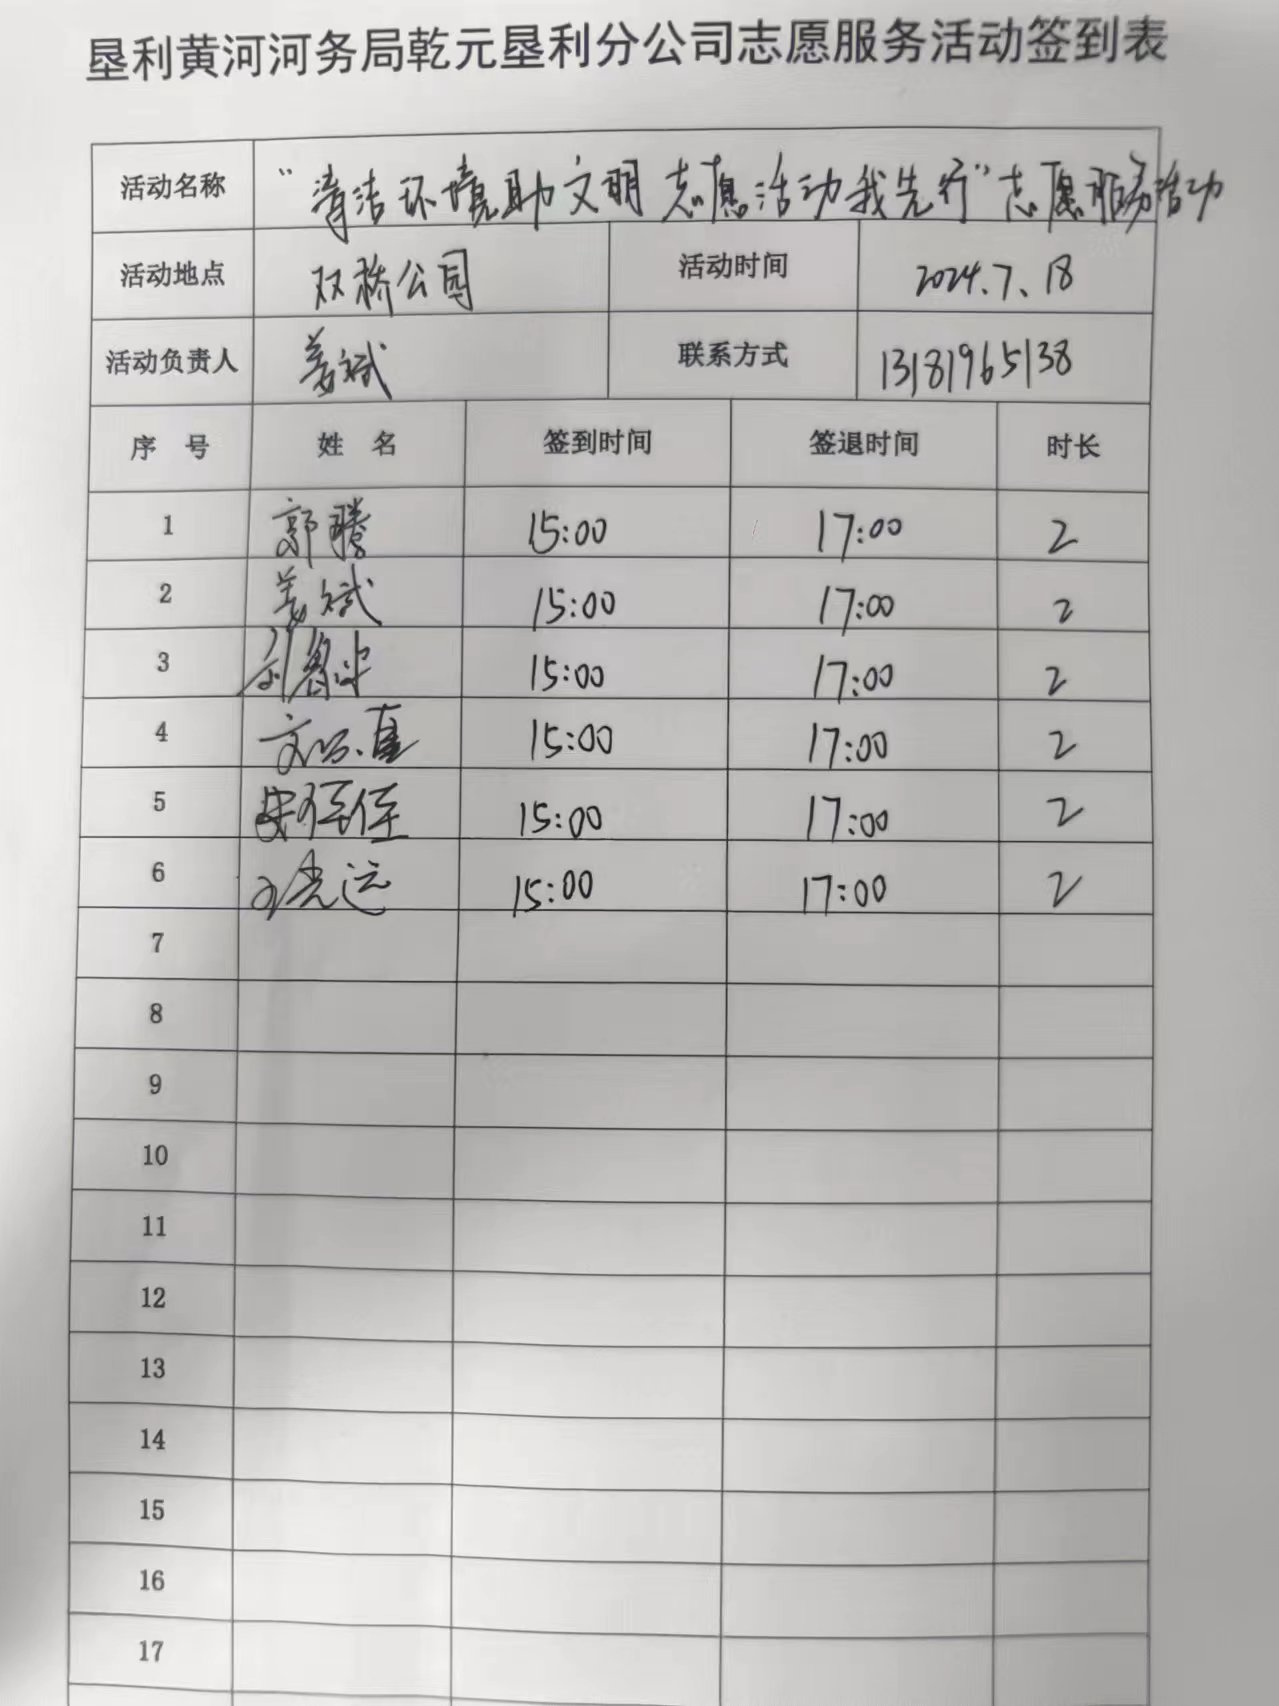 垦利黄河河务局乾元垦利分公司志愿服务活动签到表
活动名称 “清洁环境助文明 志愿活动我先行”志愿服务活动
活动地点 双桥公园 活动时间 2024.7.18
活动负责人 姜斌 联系方式 13181965138
序 号 姓 名 签到时间 签退时间 时长
1 郭腾 15:00 17:00 2
2 姜斌 15:00 17:00 2
3 15:00 17:00 2
4 15:00 17:00 2
5 15:00 17:00 2
6 15:00 17:00 2
7
8
9
10
11
12
13
14
15
16
17